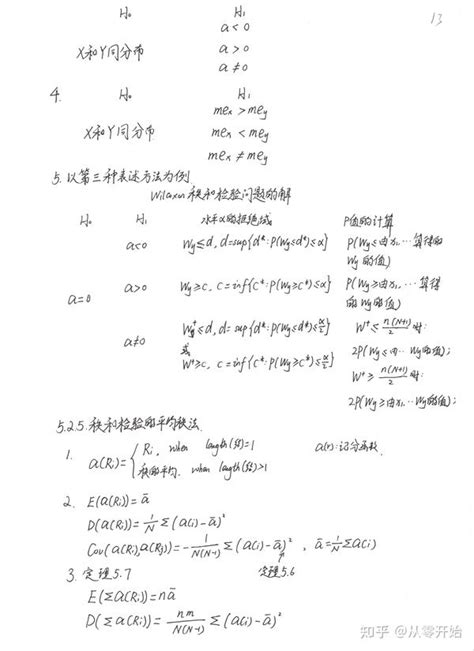 13
H₀ H₁
a < 0
X和Y同分布 a > 0
a ≠ 0
4. H₀ H₁
meₓ > me_y
X和Y同分布 meₓ < me_y
meₓ ≠ me_y
5. 以第三种表述方法为例
Wilcoxon 秩和检验问题的解
H₀ H₁ 水平α的拒绝域 P值的计算
a<0 Wy≤d, d=sup{d*: P(Wy≤d*)≤α} P(Wy≤由y₁,…算得的Wy的值)
a=0 a>0 Wy≥c, c=inf{c*: P(Wy≥c*)≤α} P(Wy≥由y₁,…算得的Wy的值)
a≠0 Wy≤d, d=sup{d*: P(Wy≤d*)≤α/2} W⁺≤n(N+1)/2时:
或 2P(Wy≤由… Wy的值);
W⁺≥c, c=inf{c*: P(Wy≥c*)≤α/2} W⁺≥n(N+1)/2时:
2P(Wy≥由y₁,… Wy的值);
5.2.5. 秩和检验的平均秩法
1. a(Rᵢ)= { Rᵢ, when length(结)=1 a(r):记分函数.
秩的平均, when length(结)>1
2. E(a(Rᵢ))=ā
D(a(Rᵢ))=1/N Σ(a(i)-ā)²
Cov(a(Rᵢ),a(Rⱼ))=-1/(N(N-1)) Σ(a(i)-ā)², ā=1/N Σa(i)
3. 定理5.7 定理5.6
E(Σa(Rᵢ))=nā
D(Σa(Rᵢ))=nm/(N(N-1)) Σ(a(i)-ā)²
知乎 @从零开始